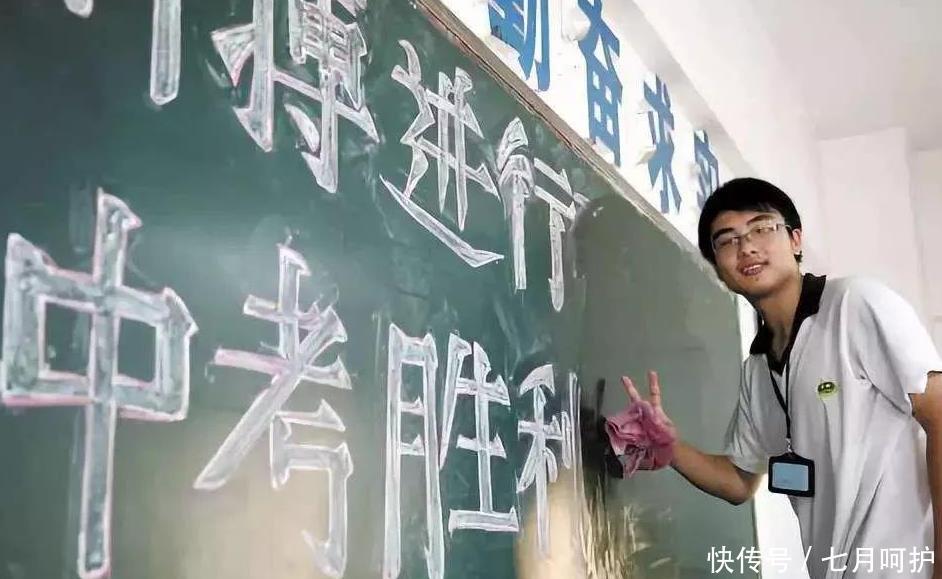 勤奋求
搏进行
中考胜利
快传号／七月呵护